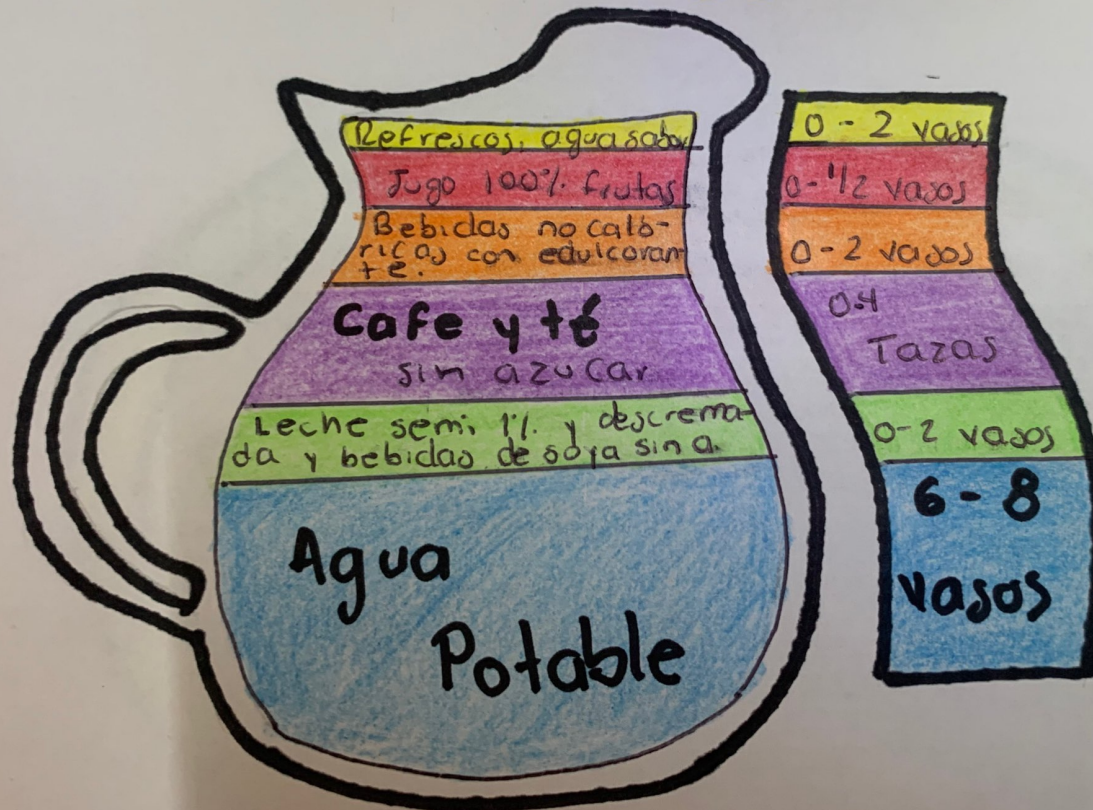 Refrescos, agua sabor
Jugo 100% frutas
Bebidas no caló-
ricas con edulcoran-
te.
Cafe y té
sin azucar
Leche semi 1% y descrema-
da y bebidas de soya sin a.
Agua
Potable
0 - 2 vasos
0 - 1/2 vasos
0 - 2 vasos
0-4
Tazas
0-2 vasos
6 - 8
vasos